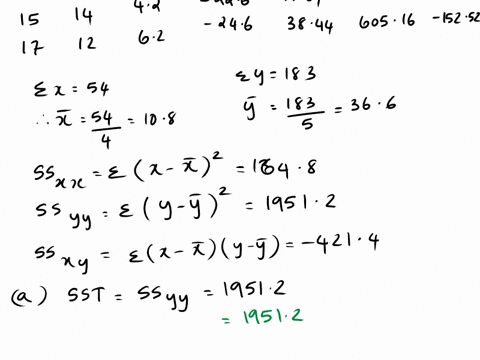 15 14 4.2
17 12 6.2 -24.6 38.44 605.16 -152.52
Σx = 54 Σy = 183
∴ x̄ = 54/4 = 10.8 ȳ = 183/5 = 36.6
SSxx = Σ(x-x̄)² = 164.8
SSyy = Σ(y-ȳ)² = 1951.2
SSxy = Σ(x-x̄)(y-ȳ) = -421.4
(a) SST = SSyy = 1951.2
= 1951.2